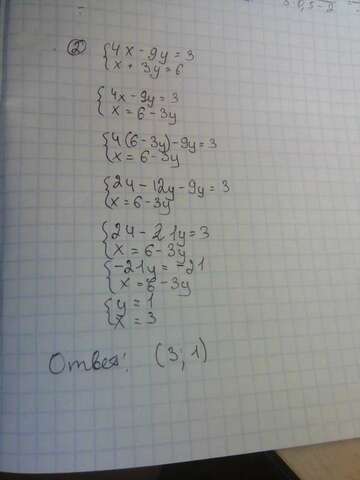 ②
4x - 9y = 3
x + 3y = 6
4x - 9y = 3
x = 6 - 3y
4(6 - 3y) - 9y = 3
x = 6 - 3y
24 - 12y - 9y = 3
x = 6 - 3y
24 - 21y = 3
x = 6 - 3y
-21y = -21
x = 6 - 3y
y = 1
x = 3
Ответ: (3; 1)